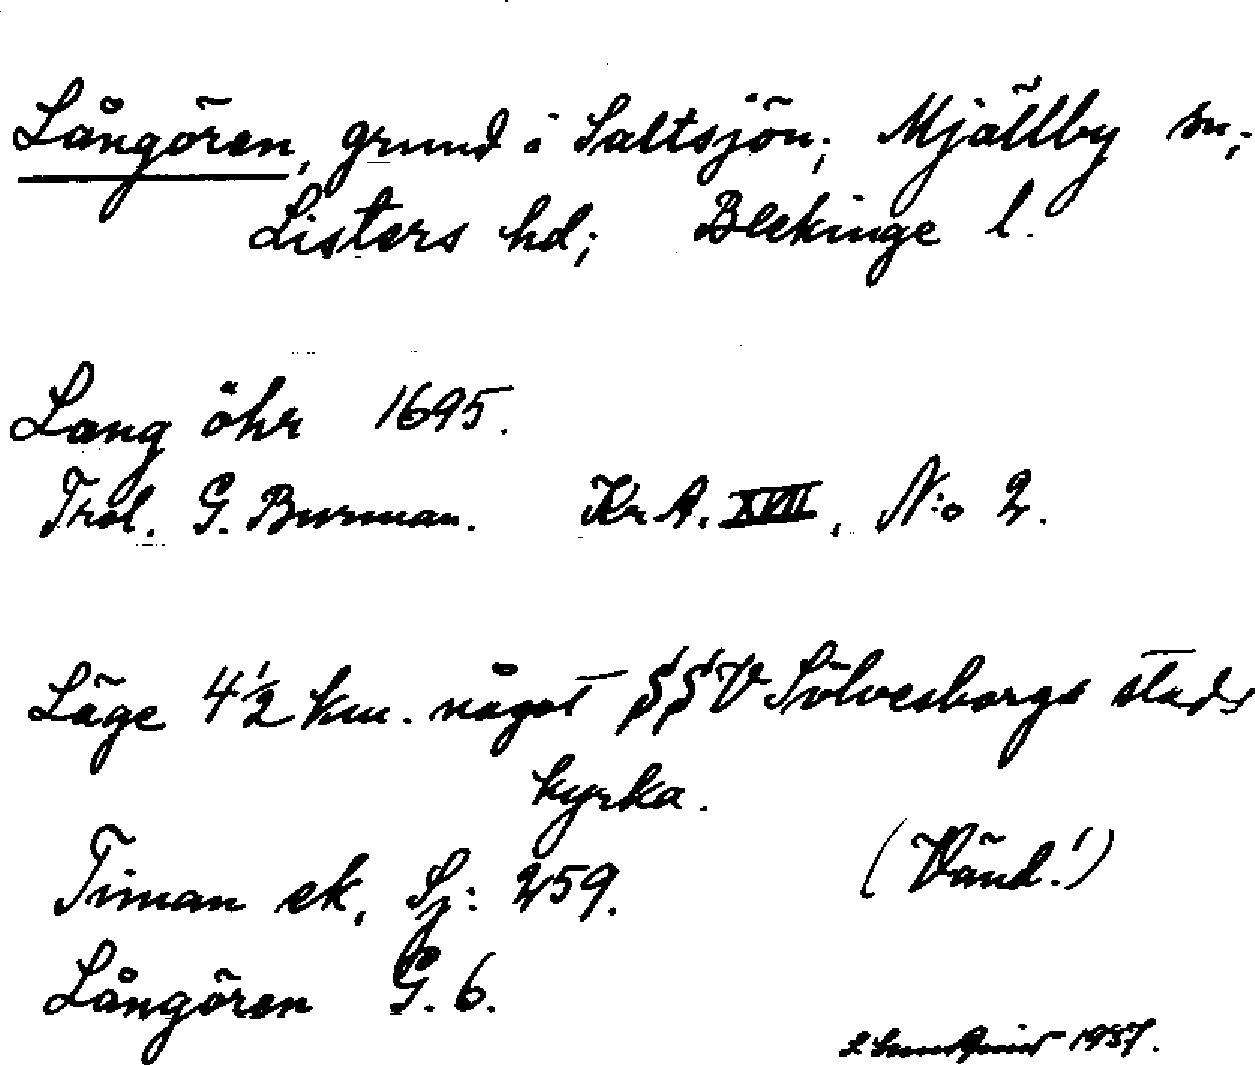 Långören, grund i Saltsjön; Mjällby sn;
Listers hd; Blekinge l.
Lang öhr 1695.
Trol. G. Burman. Kr A. XVII, N:o 2.
Läge 4½ km. något SSV Sölvesborgs stads
kyrka.
(Vänd!)
Timan ek, Sj: 259.
Långören G. 6.
1937.